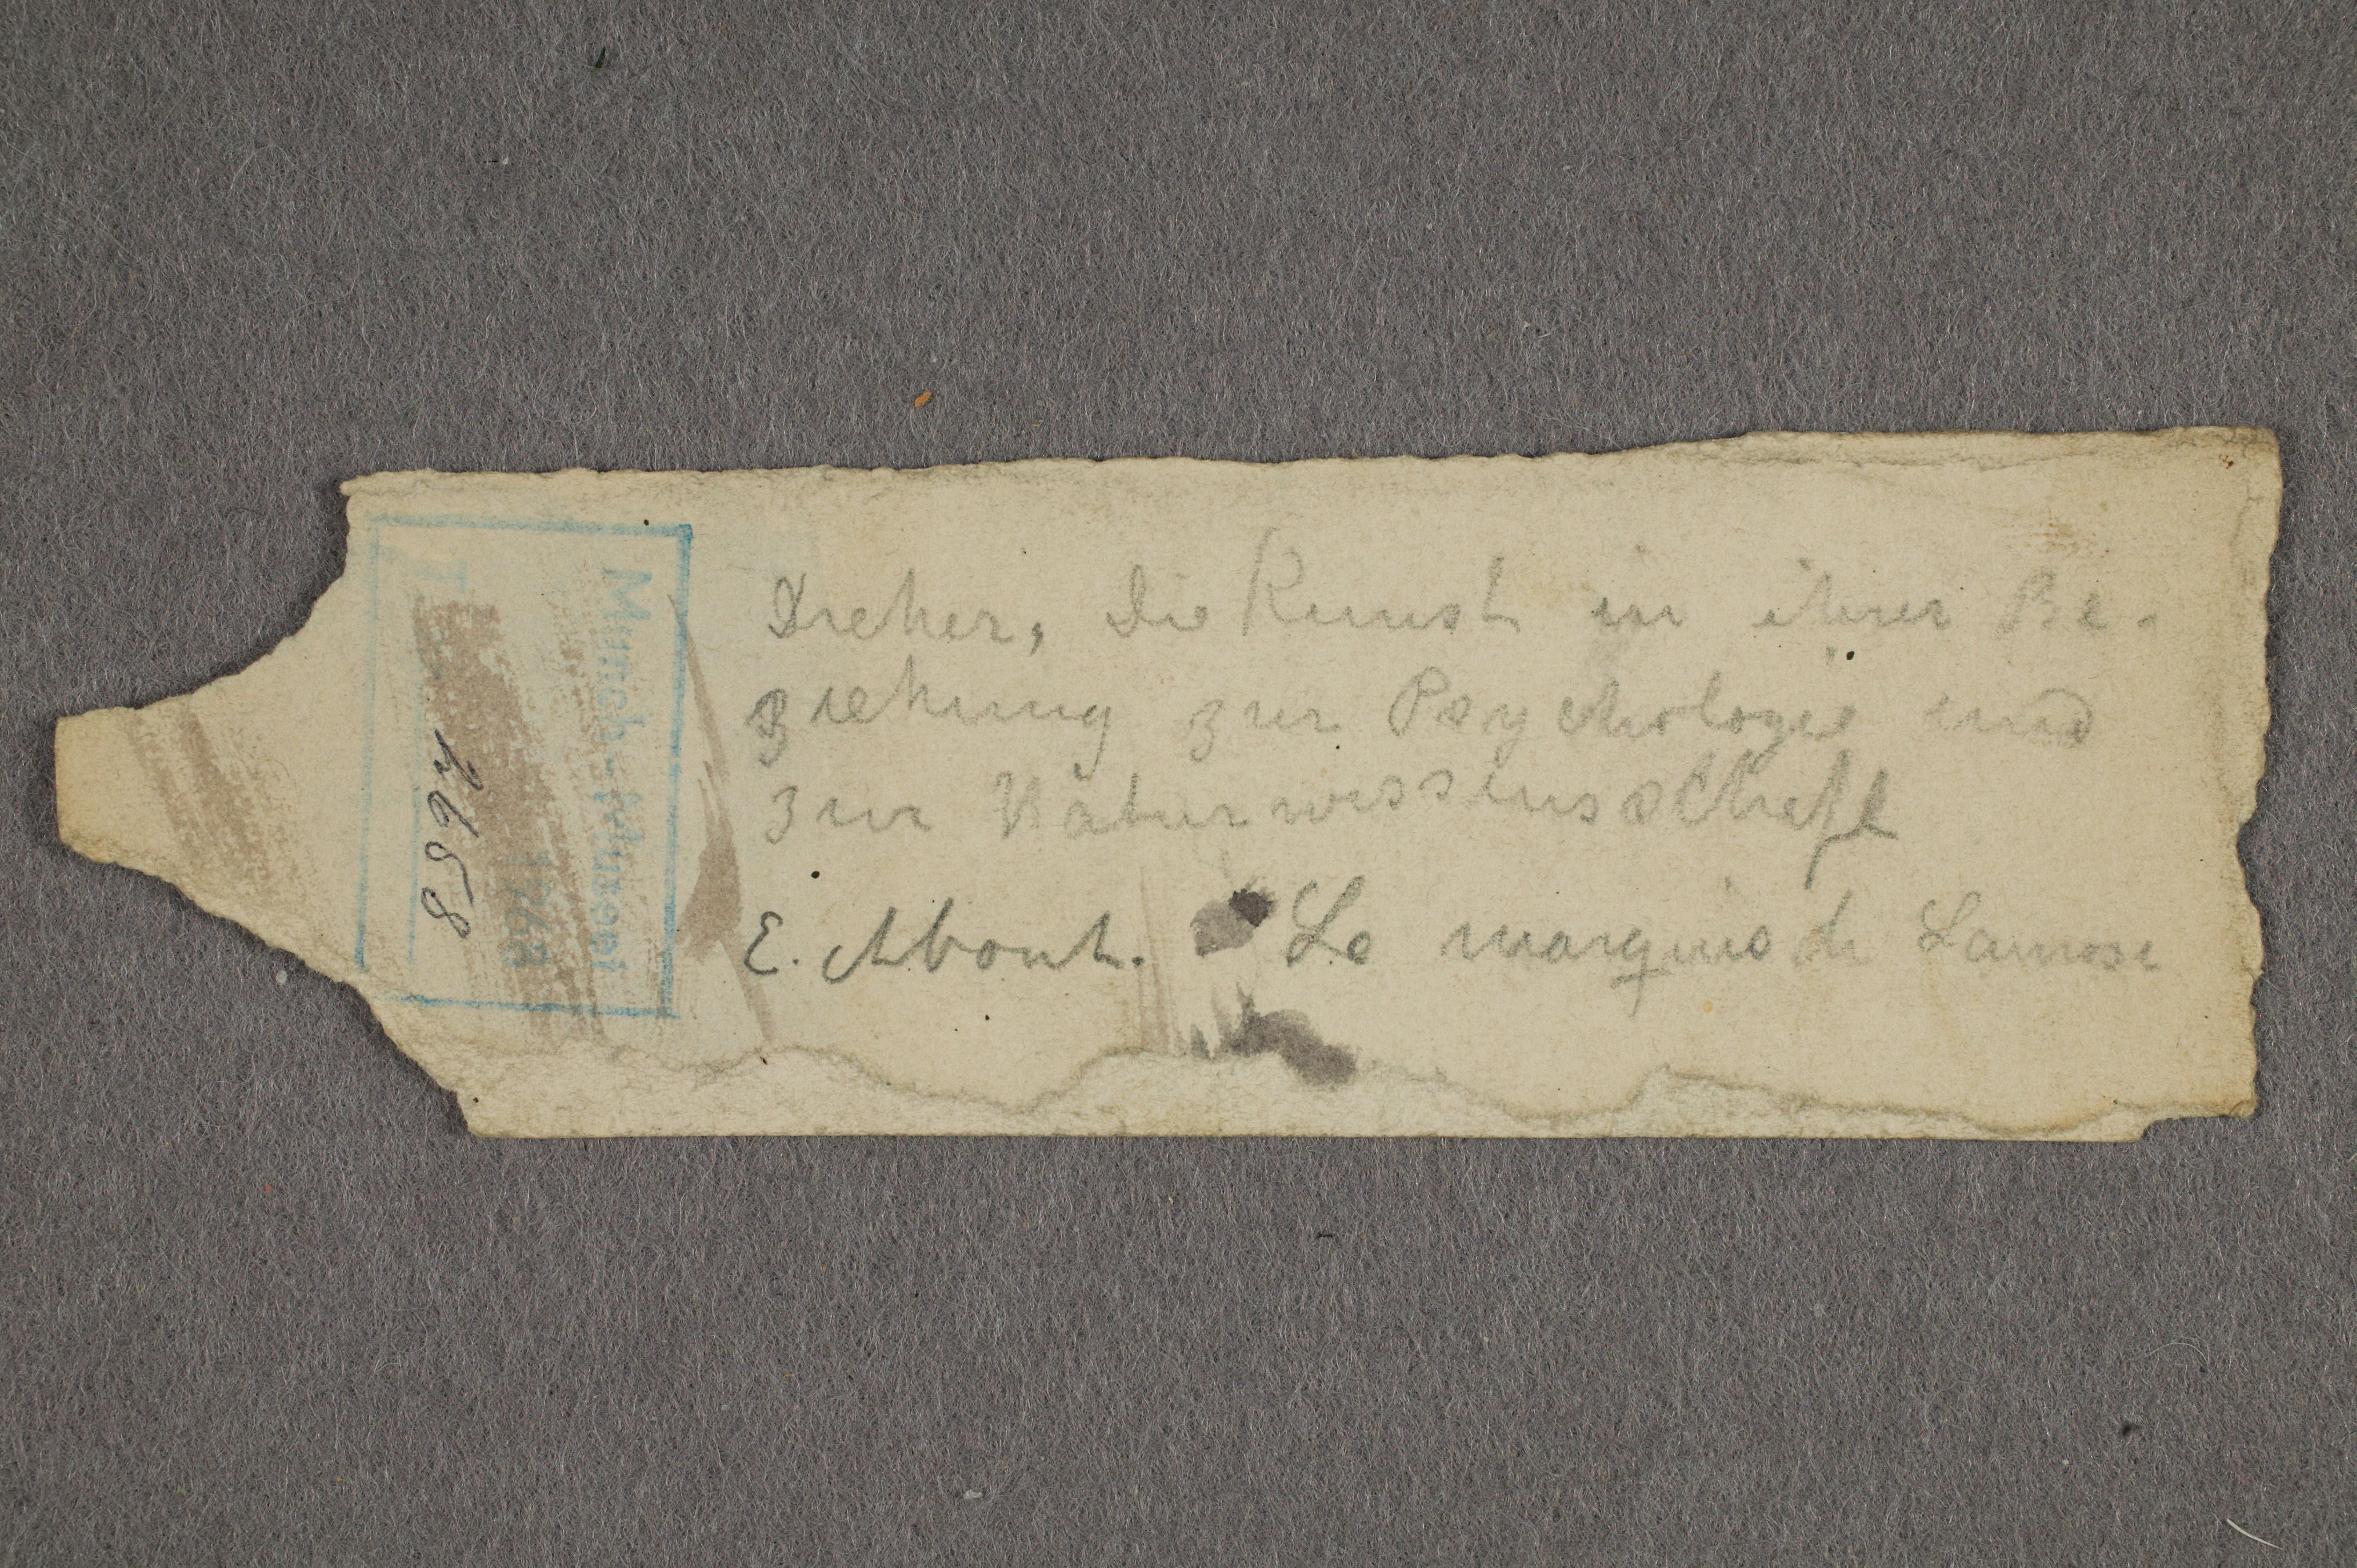 Dreher, Die Kunst in ihrer Be-
ziehung zur Psychologie und
zur Naturwissenschaft
E. About. Le marquis de Lanrose
Munch-Museet
T
1768
2658